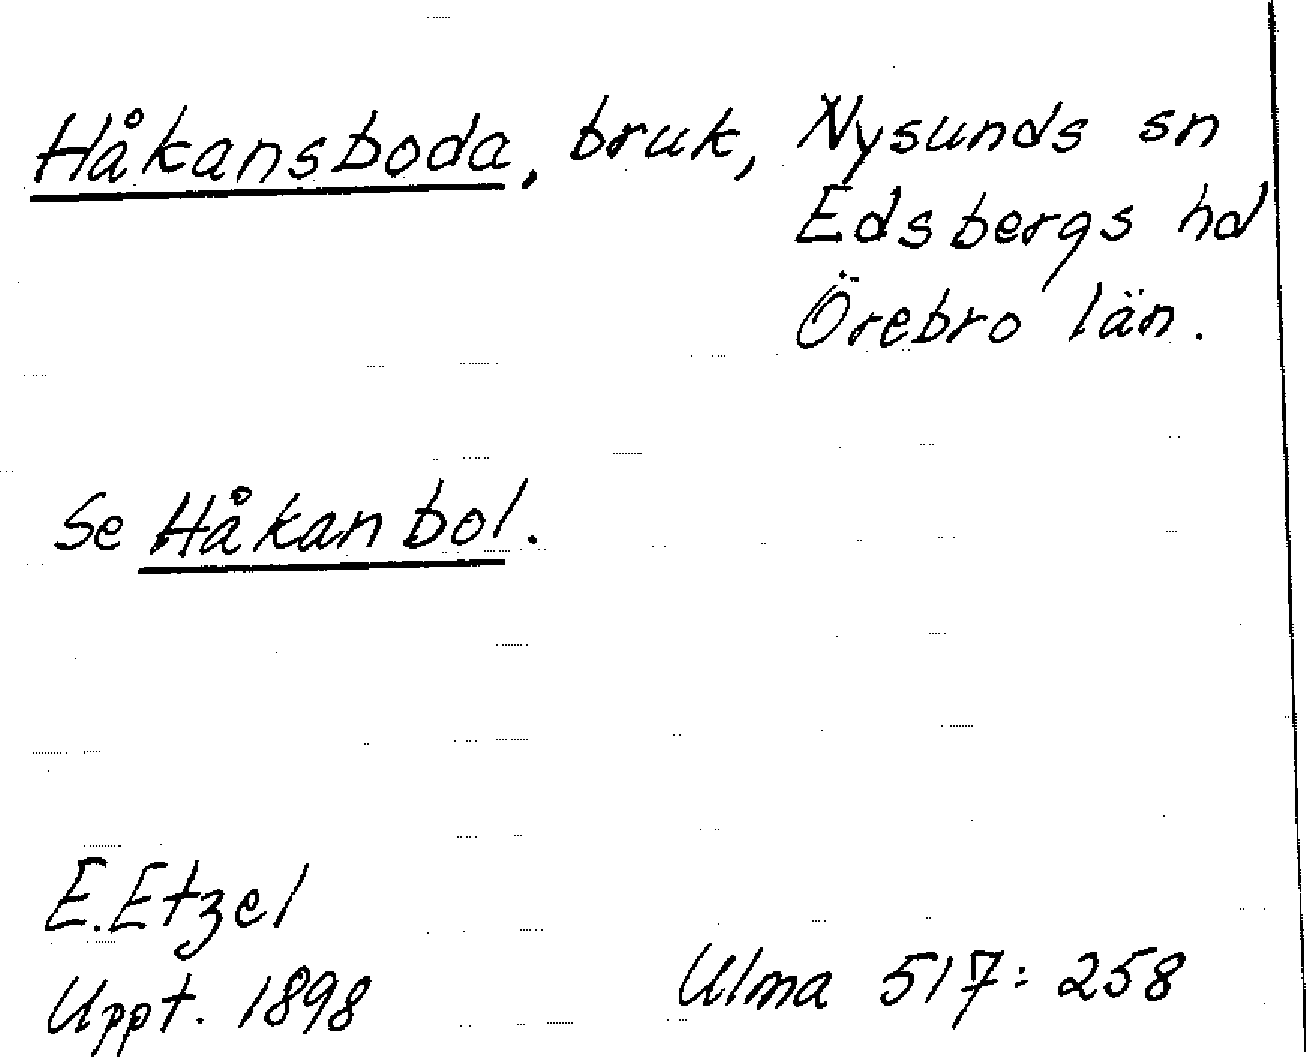 Håkansboda, bruk, Nysunds sn
Edsbergs hd
Örebro län.
Se Håkanbol.
E. Etzel
Uppt. 1898
Ulma 517:258